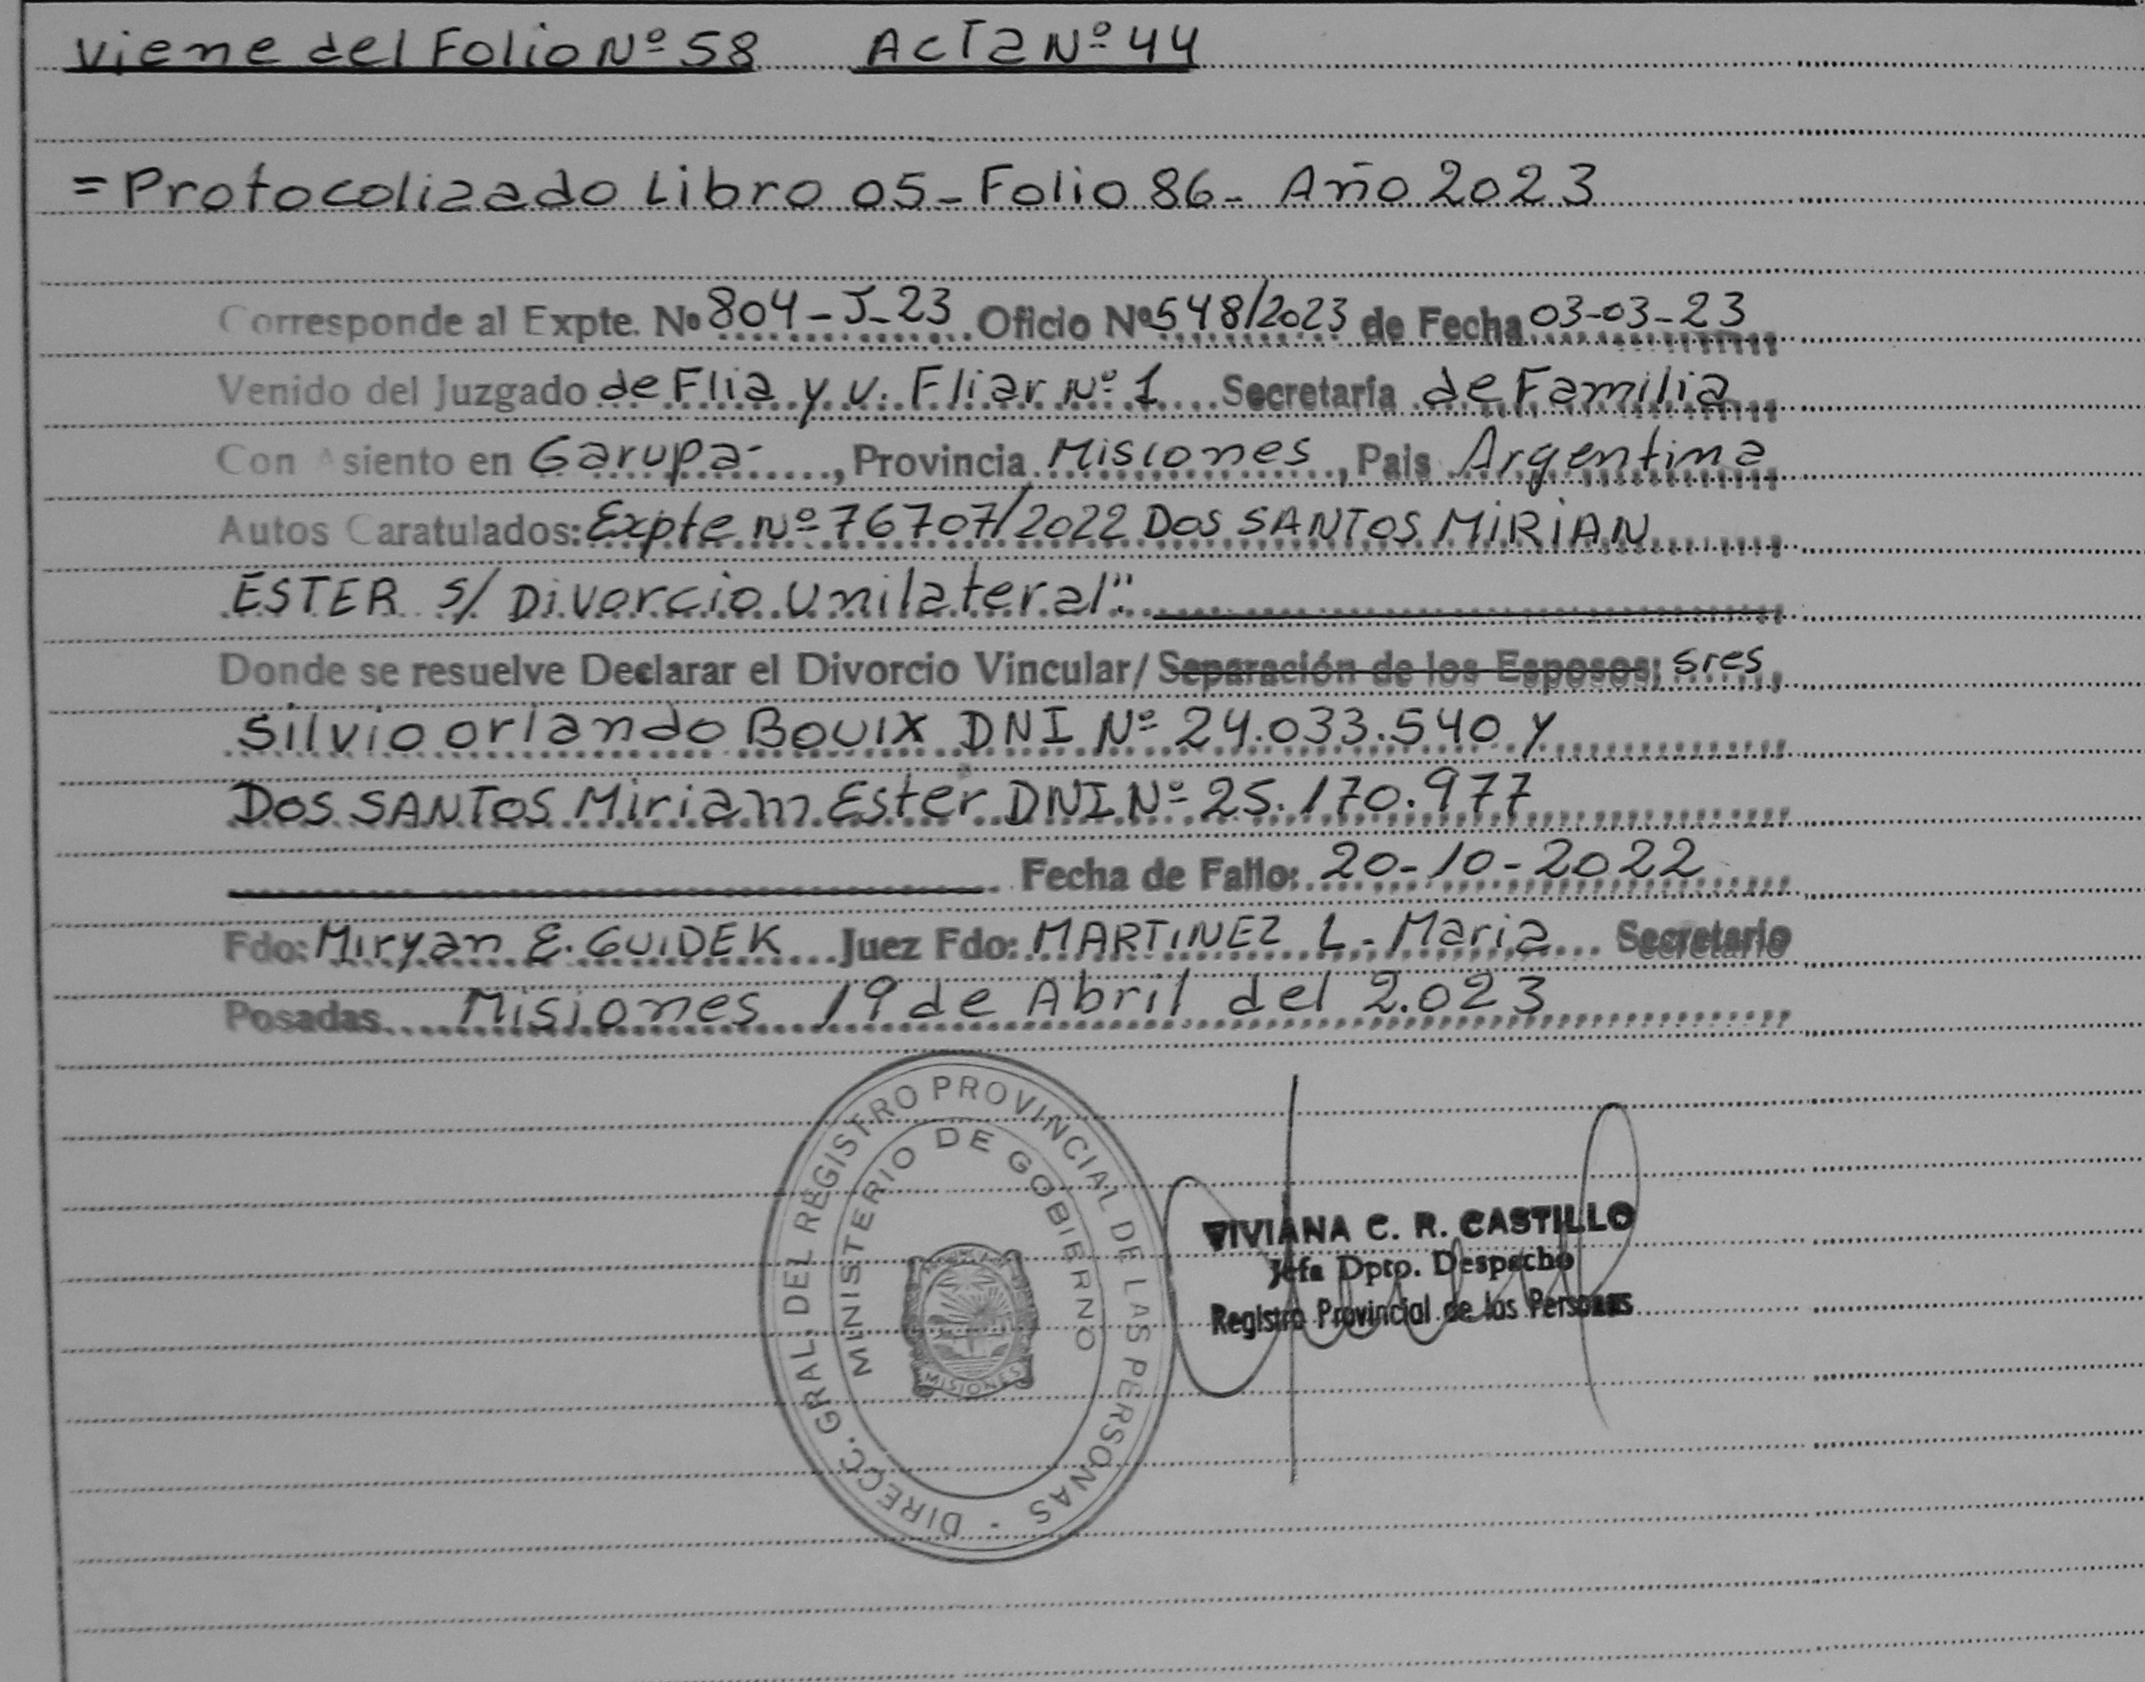 Viene del Folio Nº 58 Acta Nº 44
= Protocolizado Libro 05 - Folio 86 - Año 2023
Corresponde al Expte. Nº 804-J-23 Oficio Nº 548/2023 de Fecha 03-03-23
Venido del Juzgado de Flia y V. Fliar Nº 1 Secretaría de Familia
Con Asiento en Garupá, Provincia Misiones, Pais Argentina
Autos Caratulados: Expte Nº 76707/2022 DOS SANTOS MIRIAN
ESTER s/ Divorcio Unilateral".
Donde se resuelve Declarar el Divorcio Vincular/ Separación de los Esposos; sres,
Silvio Orlando BOUIX DNI Nº 24.033.540 y
DOS SANTOS Miriam Ester DNI Nº 25.170.977
Fecha de Fallo: 20-10-2022
Fdo: Miryan E. GUIDEK Juez Fdo: MARTINEZ L. Maria Secretario
Posadas Misiones 19 de Abril del 2.023
DIRECC. GRAL. DEL REGISTRO PROVINCIAL DE LAS PERSONAS
MINISTERIO DE GOBIERNO
MISIONES
VIVIANA C. R. CASTILLO
Jefa Dpto. Despacho
Registro Provincial de las Personas